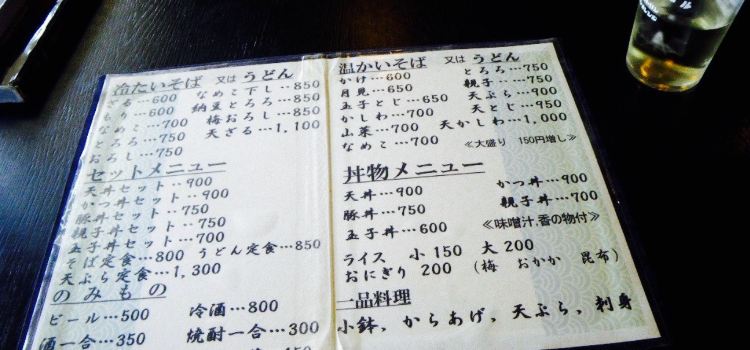 冷たいそば 又は うどん
ざる…600 なめこ下し‥850
もり…600 納豆とろろ…850
なめこ…700 梅おろし…850
とろろ…750 天ざる…1,100
おろし…750
セットメニュー
天丼セット‥900
かつ丼セット‥900
豚丼セット…750
親子丼セット…750
玉子丼セット…700
そば定食…800 うどん定食…850
天ぷら定食…1,300
のみもの
ビール…500 冷酒…800
酒一合…350 焼酎一合…300
温かいそば 又は うどん
かけ…600 とろろ…750
月見…650 親子‥750
玉子とじ…650 天ぷら…900
かしわ…700 天とじ…950
山菜…700 天かしわ…1,000
なめこ…700 ≪大盛り 150円増し≫
丼物メニュー
天丼…900 かつ丼…900
豚丼…750 親子丼…700
玉子丼…600 ≪味噌汁,香の物付≫
ライス 小 150 大 200
おにぎり 200 (梅 おかか 昆布)
一品料理
小鉢，からあげ，天ぷら，刺身